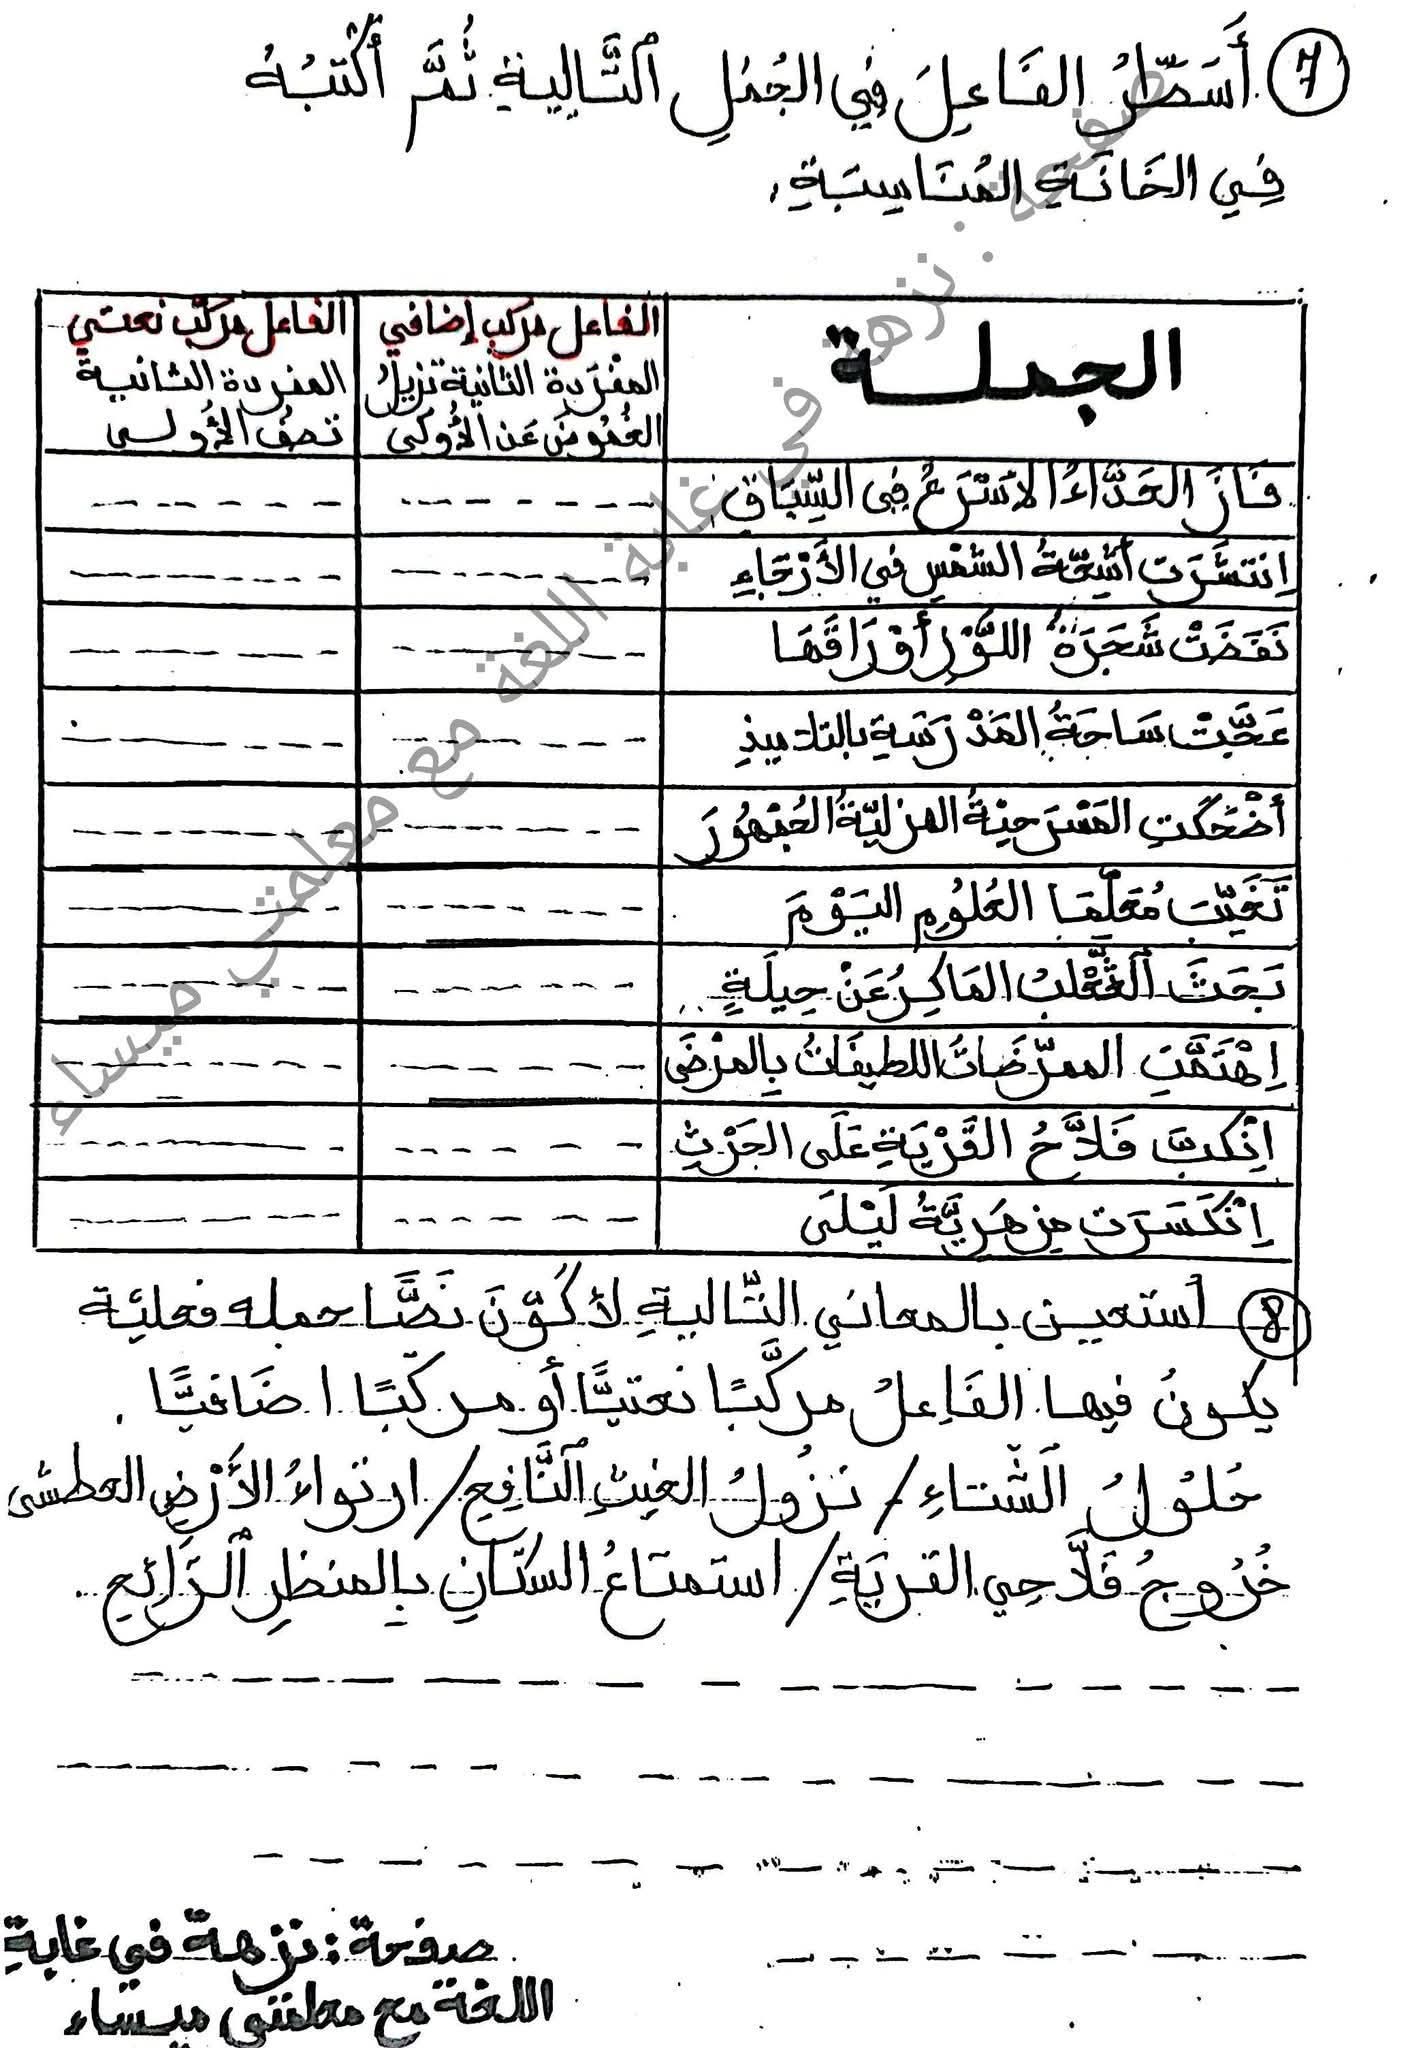 7 أَسَطِّرُ الفَاعِلَ فِي الجُمَلِ ٱلتَّالِيةِ ثُمَّ أكْتبُهُ
فِي الخَانَةِ المُنَاسِبَةِ.
الجملة
الفاعل مركب إضافي
المفْرَدة الثانية تزيلُ
الغُمُوضَ عَن الأُولَى
الفاعل مركّب نعتي
المفردة الثانية
تصفُ الأُولى
فَازَ العَدَّاءُ الأسْرَعُ فِي السِّبَاقِ.
اِنتشَرَت أشِعَّةُ الشمْسِ في الأَرْجَاءِ
نَفَضَتْ شَجَرَةُ اللَّوْزِ أوْرَاقَهَا
عَجَّتْ سَاحَةُ المَدْرَسَةِ بالتلاميذِ
أضْحَكَتِ المَسْرَحِيّةُ الهزليّةُ الجُمْهُورَ
تَغَيَّبَ مُعَلِّمَا العُلُومِ اليَوْمَ
بَحَثَ ٱلثَّعْلبُ المَاكِرُ عَنْ حِيلَةٍ
اِهْتَمَّتِ الممرّضَاتُ اللطيفَاتُ بِالمرْضَى
اِنْكبَّ فَلاَّحُ القَرْيَةِ عَلَى الحَرْثِ
اِنْكَسَرَت مِزهَرِيَّةُ لَيْلَى
8 أستعين بالمعاني التّاليةِ لأكُوِّنَ نَصًّا جمله فعليّة
يكونُ فيها الفَاعِلُ مركَّبًا نعتيًّا أو مركّبًا اضَافيًّا.
حُلُولُ الشّتاءِ / نزُولُ الغيثِ ٱلنَّافِعِ / ارتواءُ الأَرْضِ العطشى
خُرُوجُ فَلاَّحِي القريَةِ / استمتاعُ السكّانِ بِالمنظرِ ٱلرَّائِعِ
صفحة: نزهة في غابةِ
اللغة مع معلمتي ميساء
صفحة: نزهة في غابة اللغة مع معلمتي ميساء